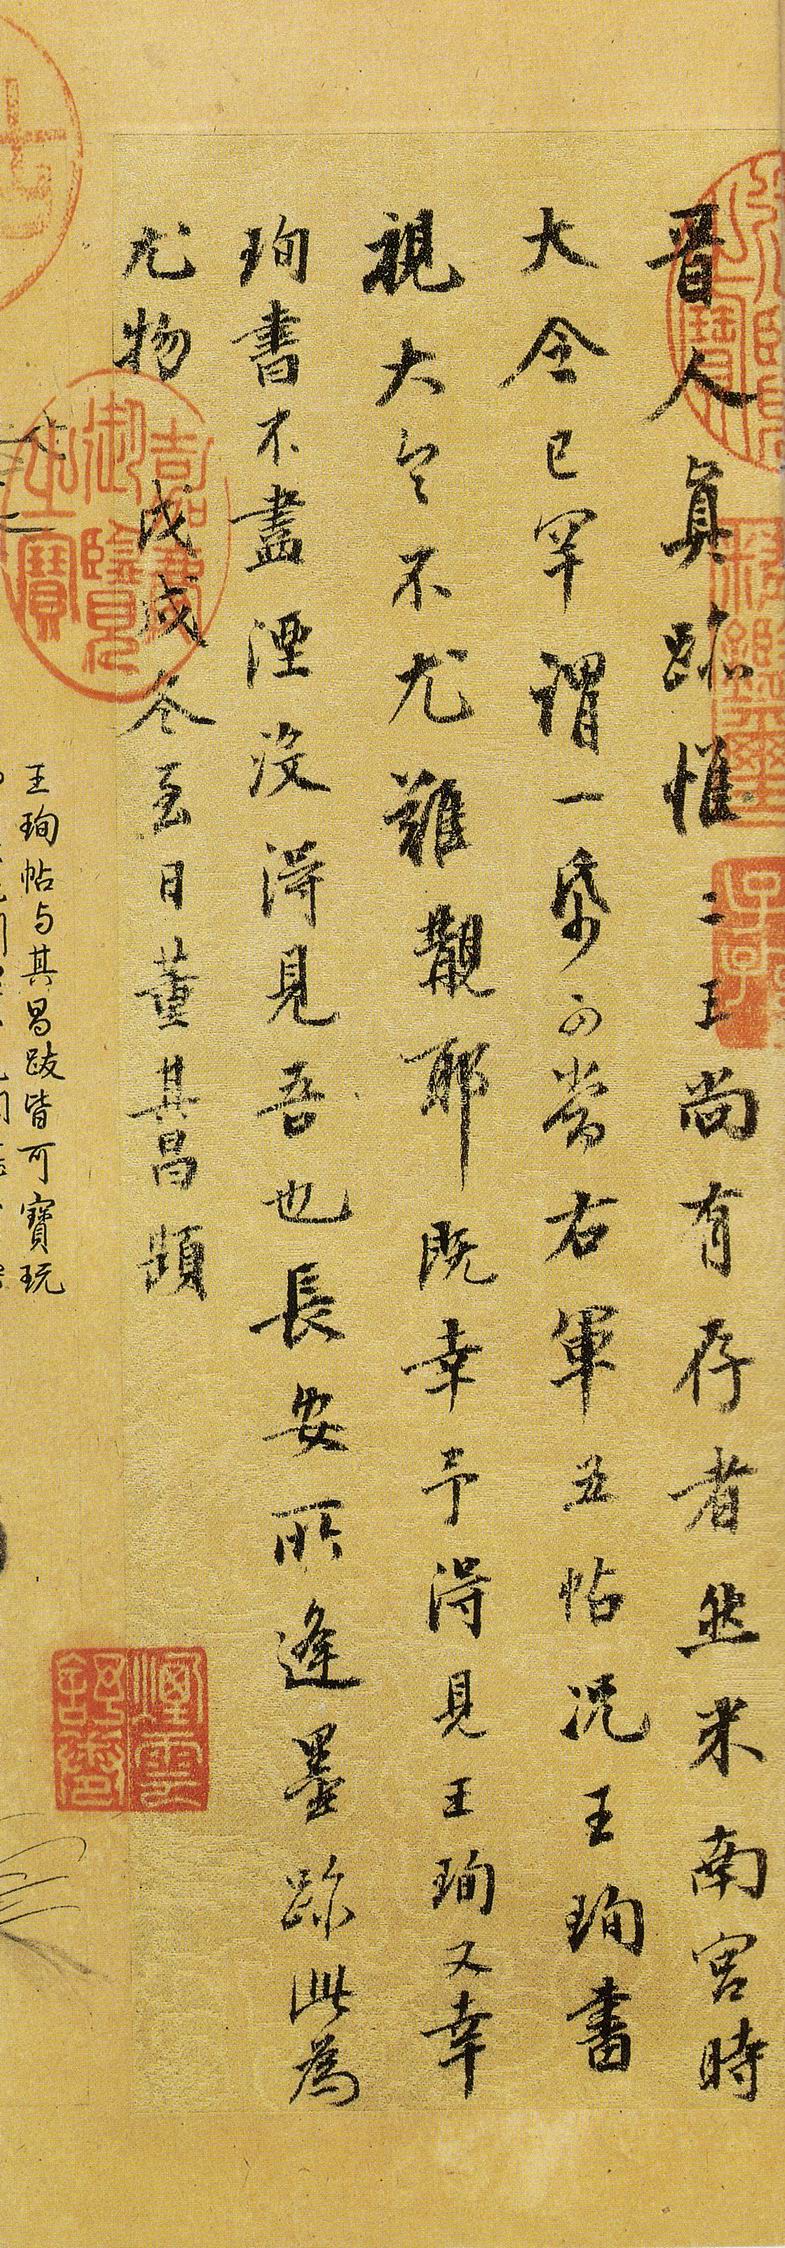 晉人眞跡惟二王尚有存者然米南宮時
大令已罕謂一帋可當右軍五帖况王珣書
視大令不尤難覯耶既幸予得見王珣又幸
珣書不盡湮没得見吾也長安所逢墨跡此為
尤物 戊戌冬至日董其昌題
嘉慶御覽之寶
王珣帖与其昌跋皆可寶玩